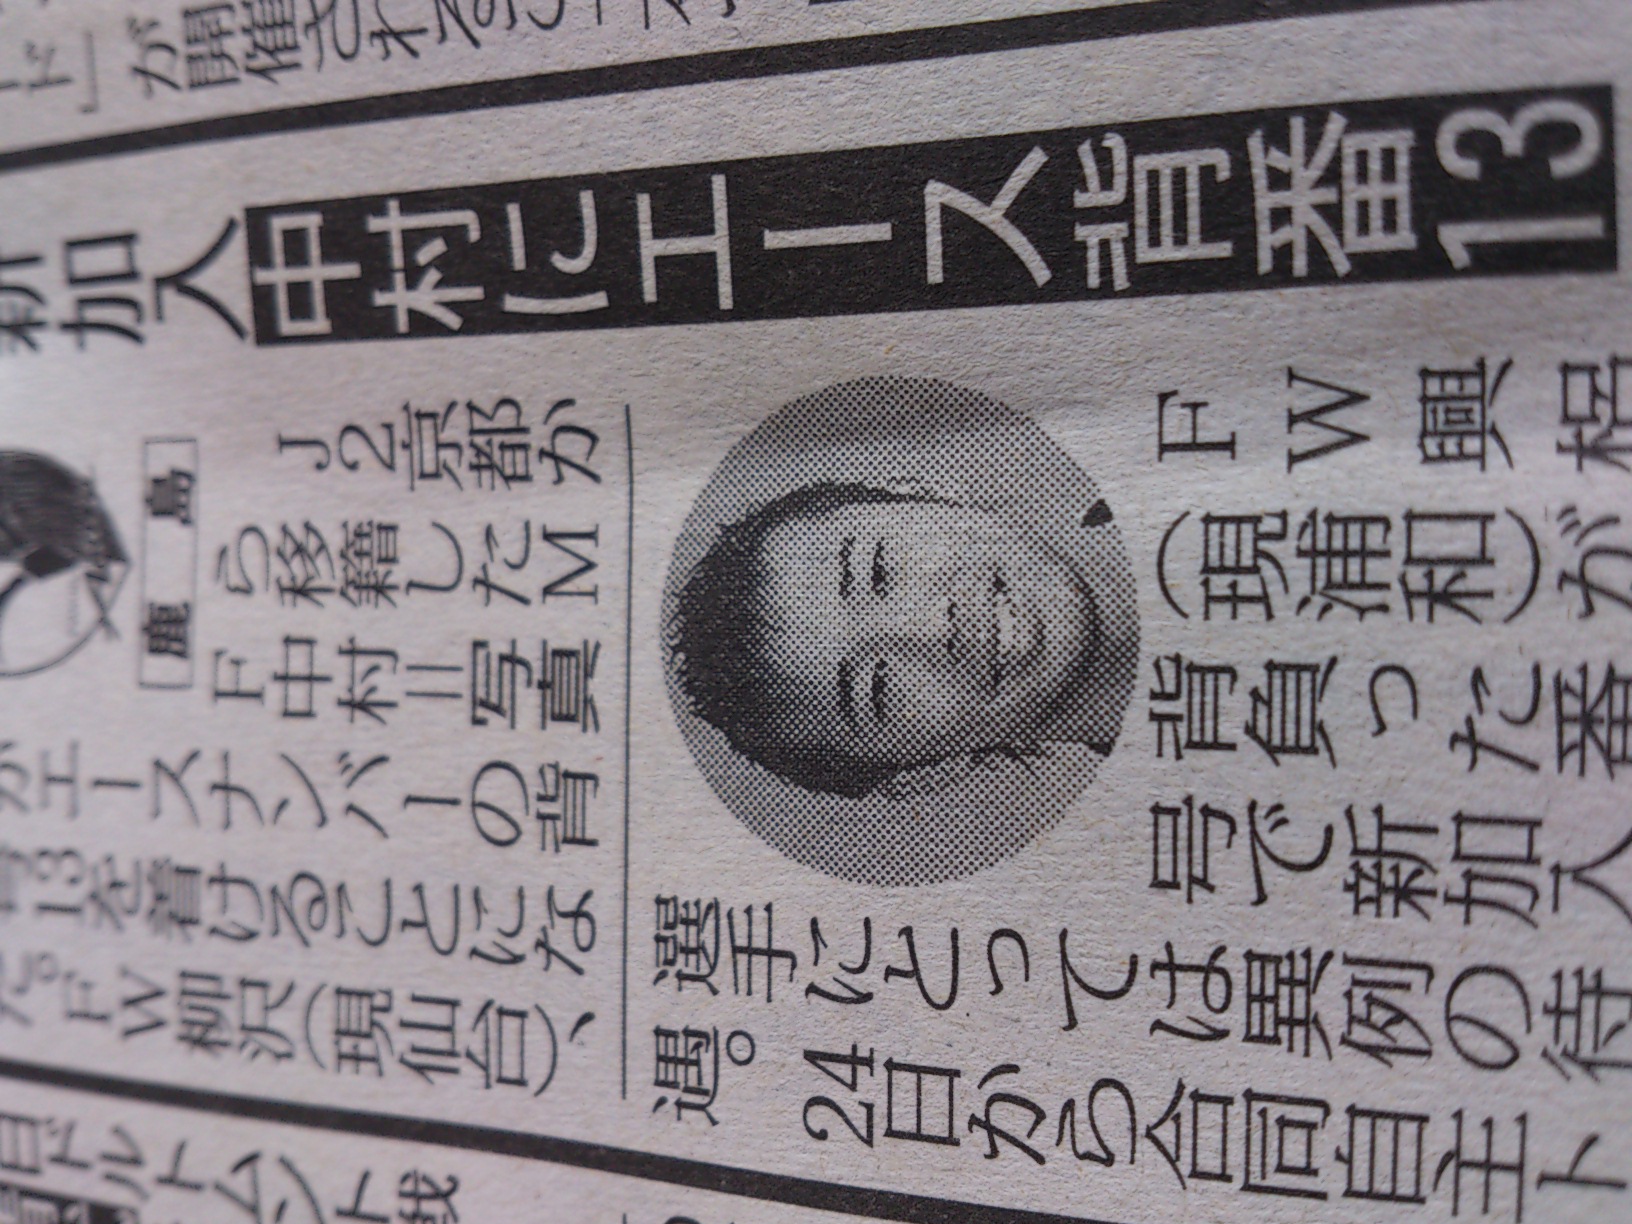 ド」が開催されるこ
新加入中村にエース背番13
鹿島
J2京都か
ら移籍したM
F中村=写真
がエースナンバーの背
号13を着けることにな
た。FW柳沢(現仙台)、
FW興梠
(現浦和)が
背負った番
号で新加入
選手にとっては異例の待
遇。24日から合同自主ト
ドルトムント戦